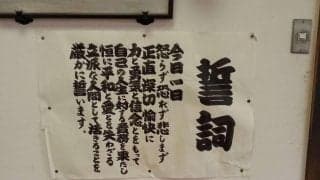 誓詞
今日一日
怒らず 恐れず 悲しまず
正直 深切 愉快に
力と勇気と信念とをもって
自己の人生に対する責務を果たし
恒に平和と愛とを失わざる
立派な人間として活きることを
厳かに誓います